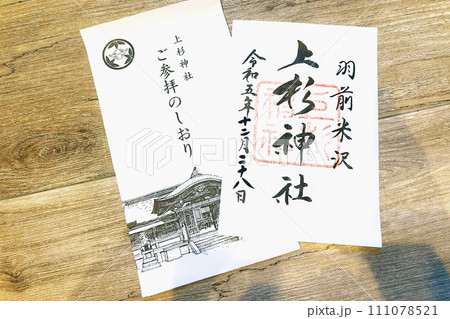 上杉神社
ご参拝のしおり
羽前米沢
上杉神社
令和五年十二月二十八日
PIXTA
111078521